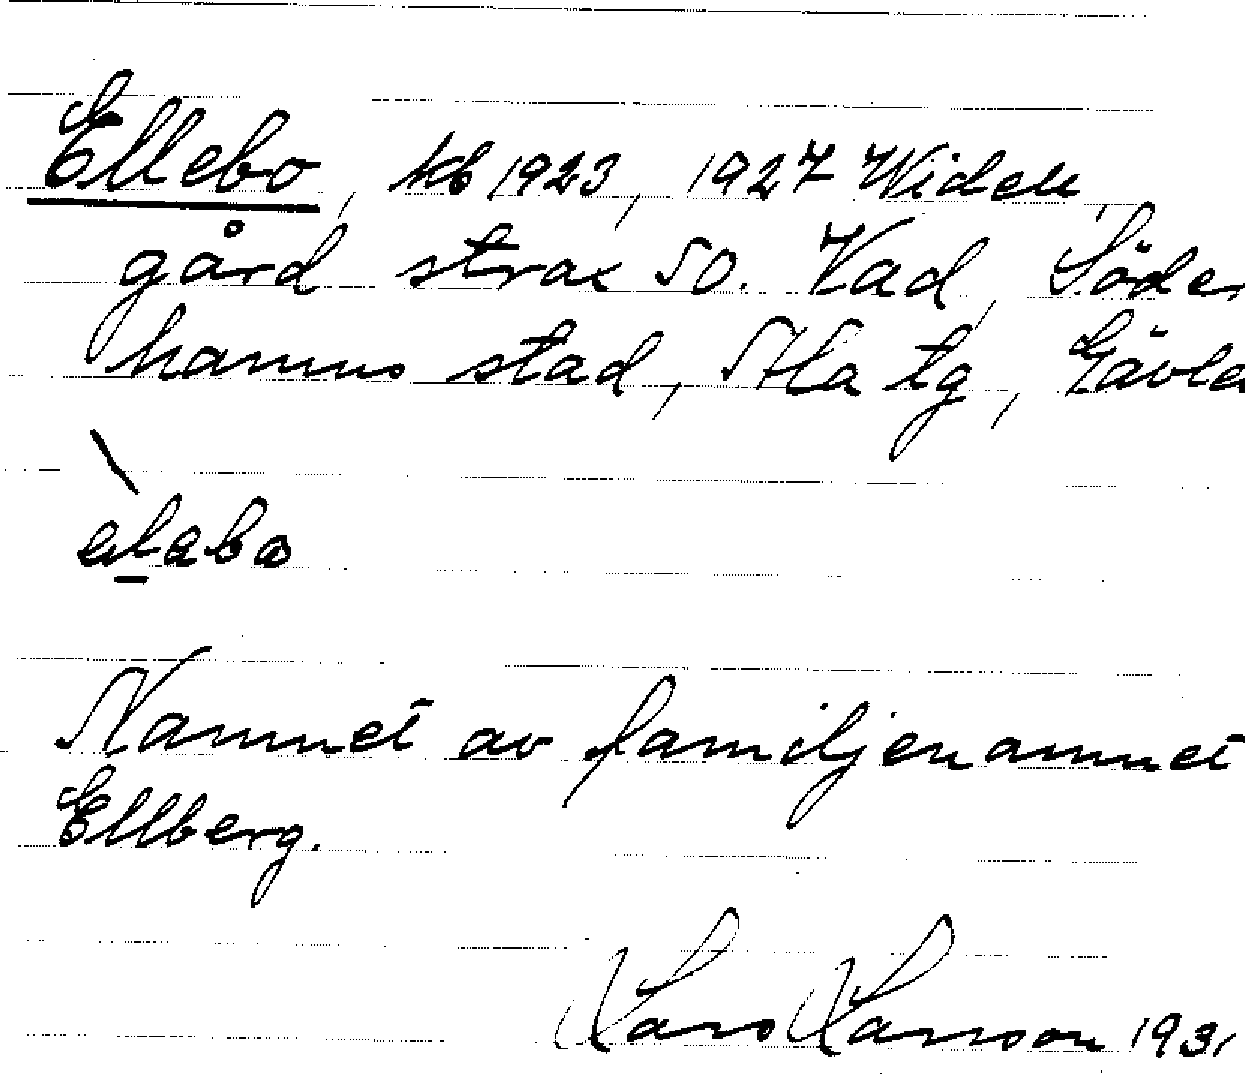 Ellebo, kb 1923, 1927 Widell,
gård strax SO. Vad, Söder
hamns stad, Ala tg, Gävle
elebo
Namnet av familjenamnet
Ellberg.
Lars Larsson 1931